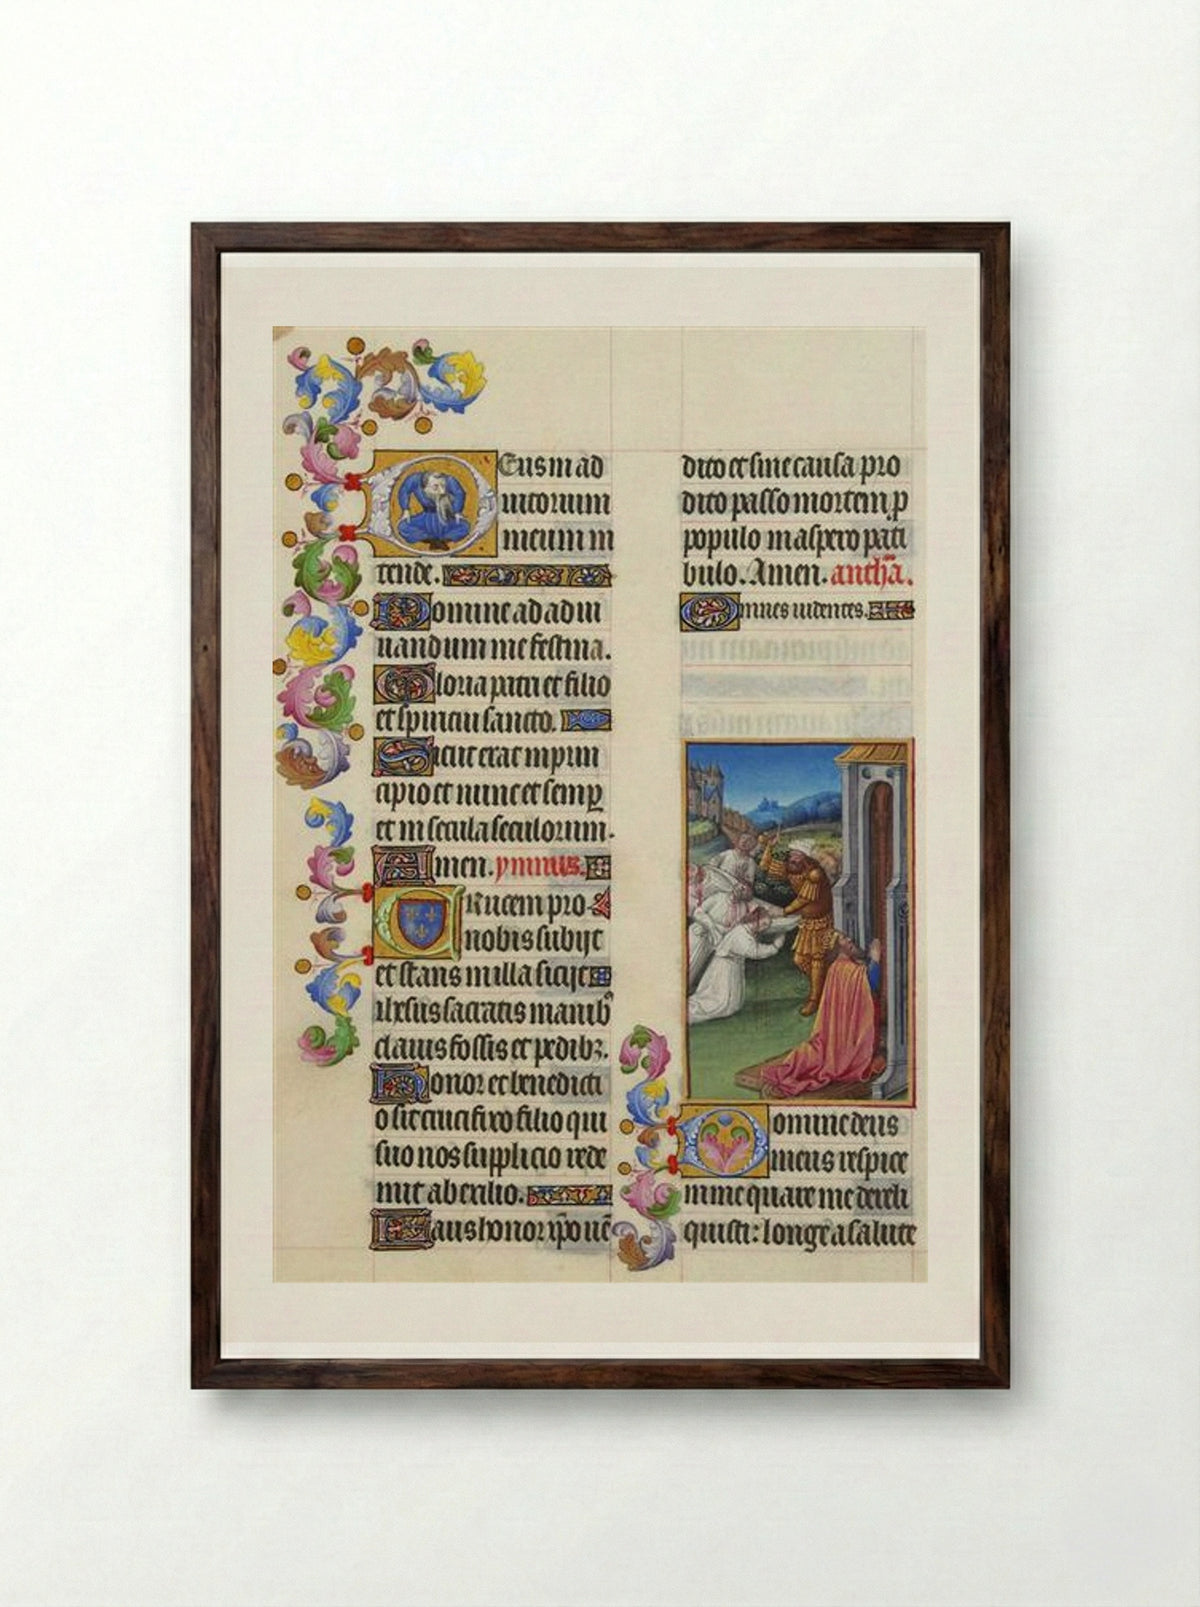 Deus in ad
iutorium
meum in
tende.
Domine ad adiu
uandum me festina.
Gloria patri et filio
et spiritui sancto.
Sicut erat in prin
cipio et nunc et semp
et in secula seculorum.
Amen. ymnus.
Crucem pro
nobis subijt
et stans in illa sicijt
ihesus sacratis manib
clauis fossis et pedibz.
Honor et benedicti
o sit crucifixo filio qui
suo nos supplicio rede
mit ab exilio.
Laus honor xpo uē
dito et sine causa pro
dito passo mortem p
populo in aspero pati
bulo. Amen. antha.
Omnes uidentes.
Domine deus
meus respice
in me quare me dereli
quisti: longe a salute